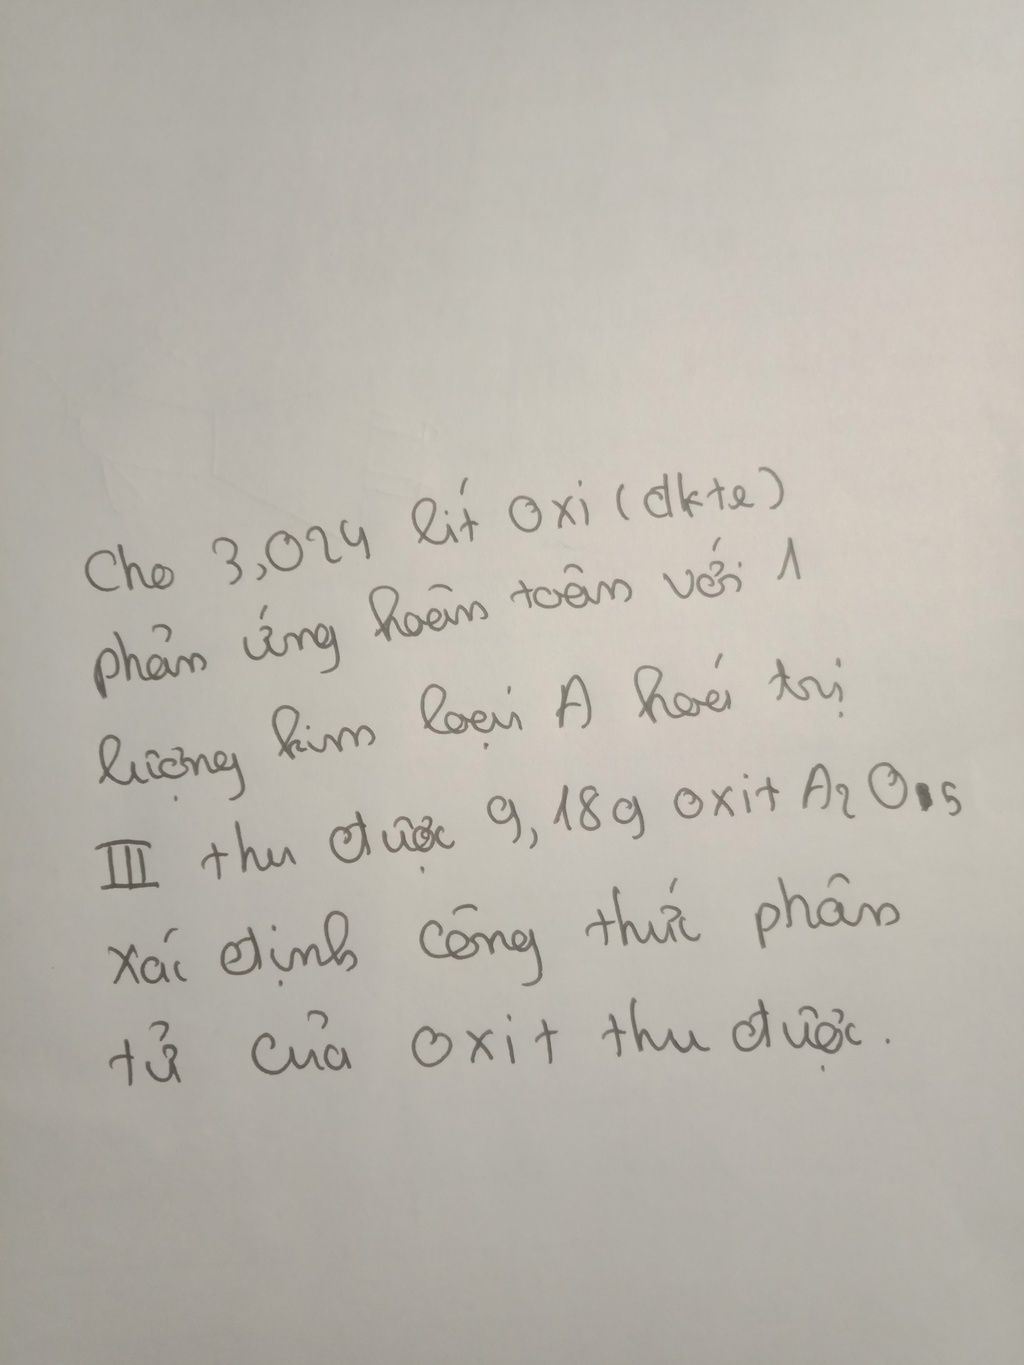 Cho 3,024 lít oxi (đkte)
phản ứng hoàn toàn với 1
lượng kim loại A hoá trị
III thu được 9,18g oxit A2 O 5
xác định công thức phân
tử của oxit thu được.